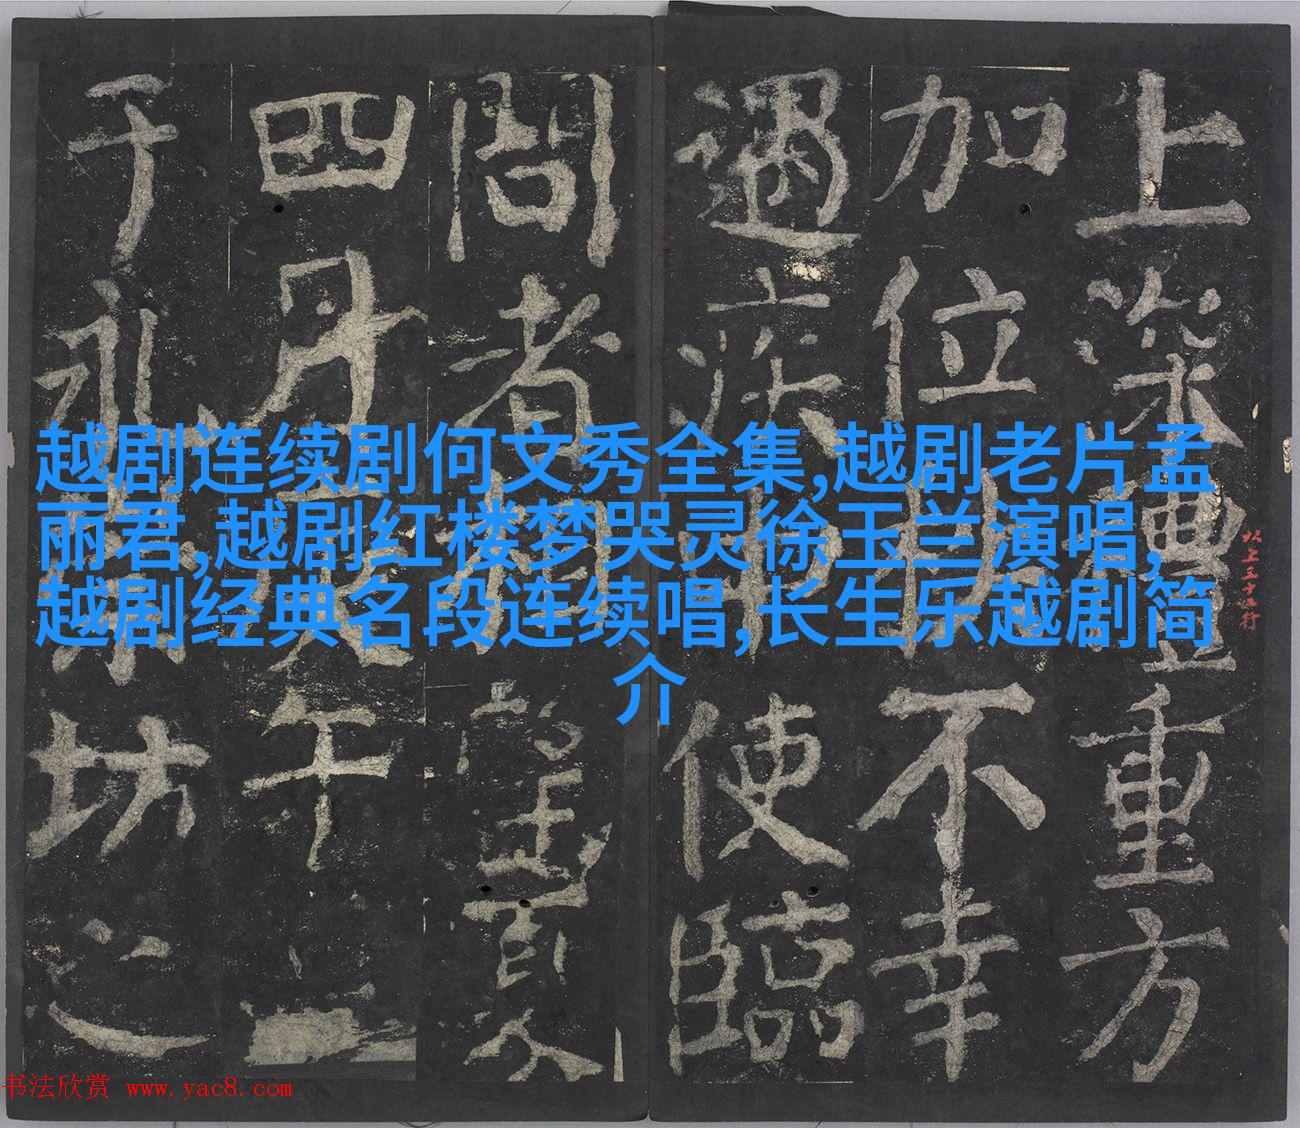 越剧连续剧何文秀全集,越剧老片孟
丽君,越剧红楼梦哭灵徐玉兰演唱,
越剧经典名段连续唱,长生乐越剧简
介
上深禮重方
加位不幸
遇疾使臨
問者相望夏
四月午
于永坊之
以上五十五行
书法欣赏 www.yac8.com